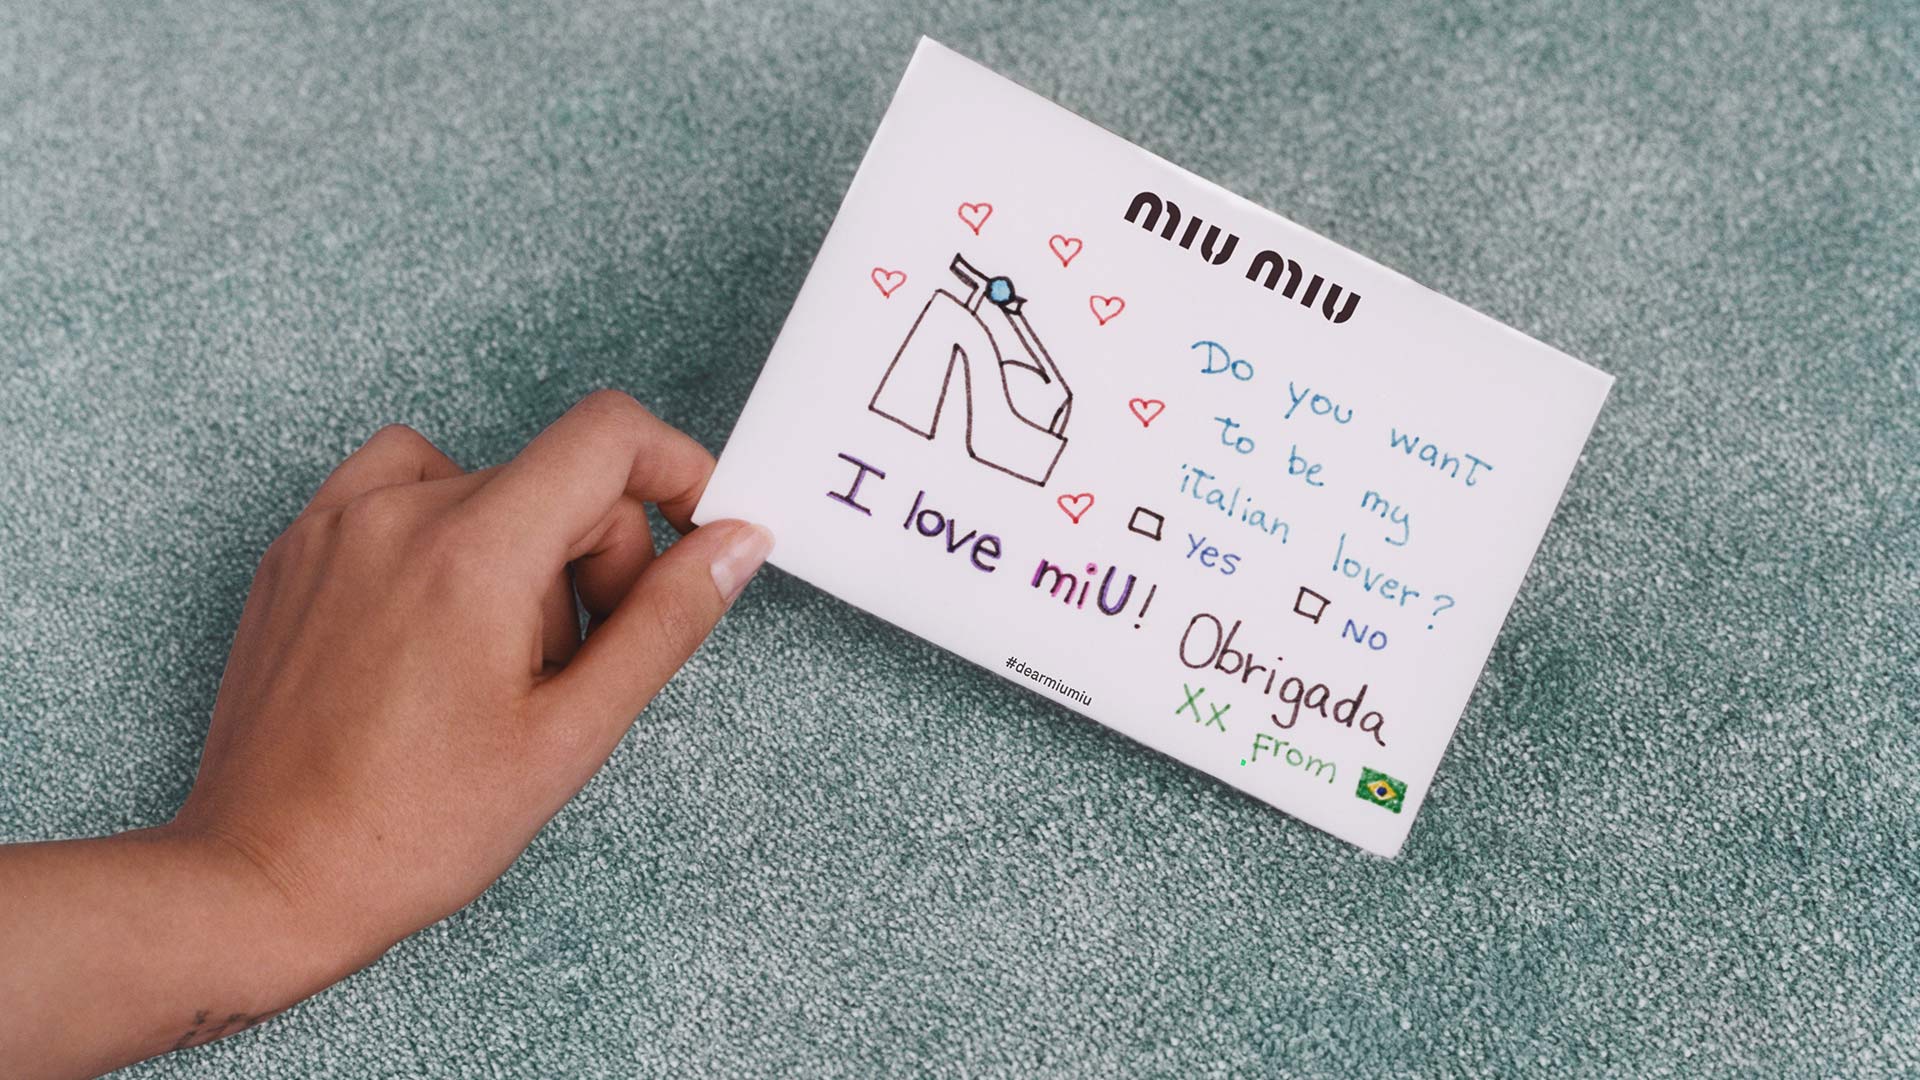 miu miu
Do you want
to be my
italian lover?
Yes
NO
I love miU!
Obrigada
Xx From
#dearmiumiu